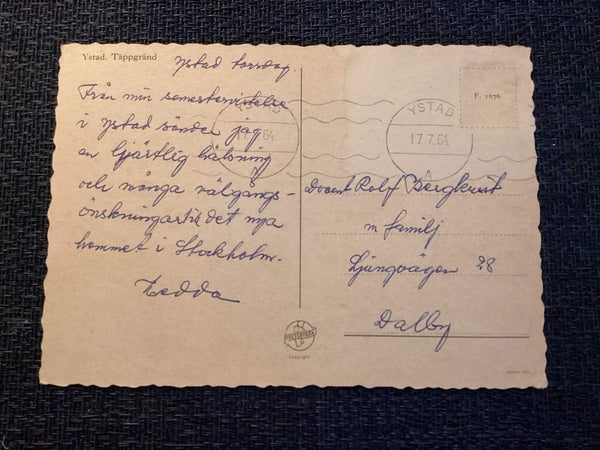 Ystad. Täppgränd
Ystad torsdag
Från min semestervistelse
i Ystad sänder jag
en hjärtlig hälsning
och många välgångs-
önskningar till det nya
hemmet i Stockholm.
Hedda
YSTAD
17.7.64
YSTAD
17.7.64.
A
F. 1676
Docent Rolf Bergkvist
m familj
Ljungvägen 28
Dalby
Copyright